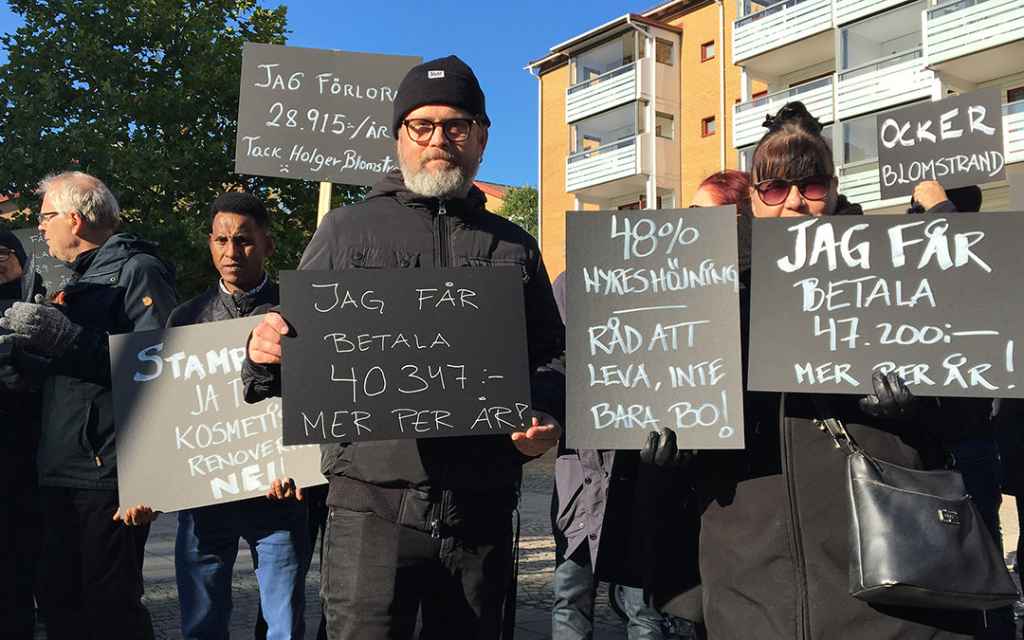 JAG FÖRLORA
28.915:-/ÅR
Tack Holger Blomstr
OCKER
BLOMSTRAND
STAMP
JA T
KOSMETIS
RENOVERI
NEJ!
JAG FÅR
BETALA
40 347:-
MER PER ÅR!
48%
HYRESHÖJNING
RÅD ATT
LEVA, INTE
BARA BO!
JAG FÅR
BETALA
47.200:-
MER PER ÅR!